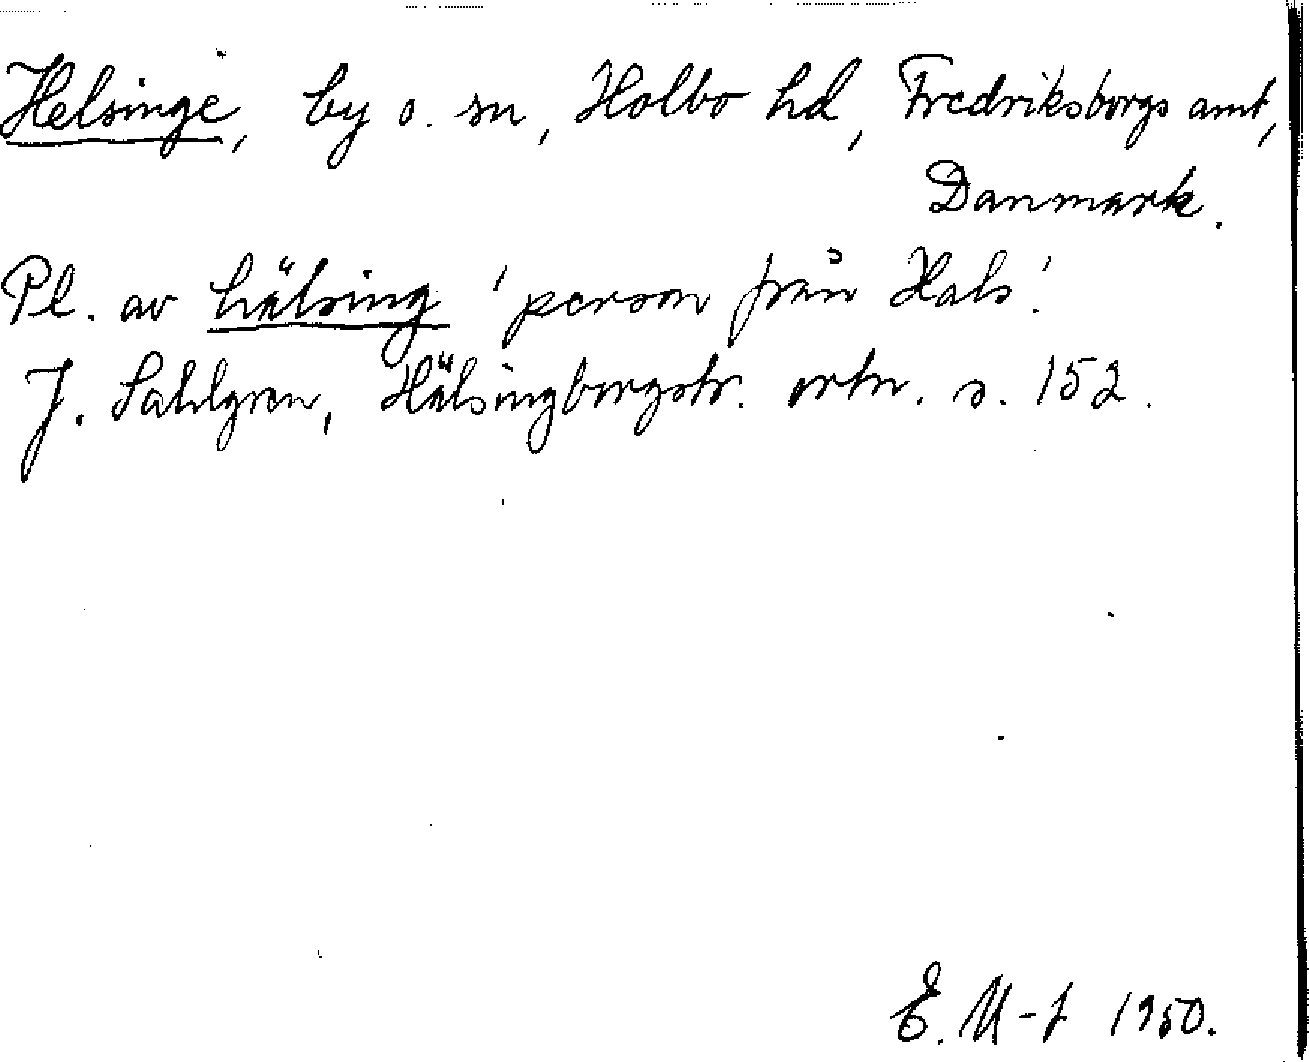 Helsinge, by o. sn, Holbo hd, Fredriksborgs amt,
Danmark.
Pl. av hälsing 'person från Hals'.
J. Sahlgren, Hälsingborgstr. ortn. s. 152.
E. M-f 1950.